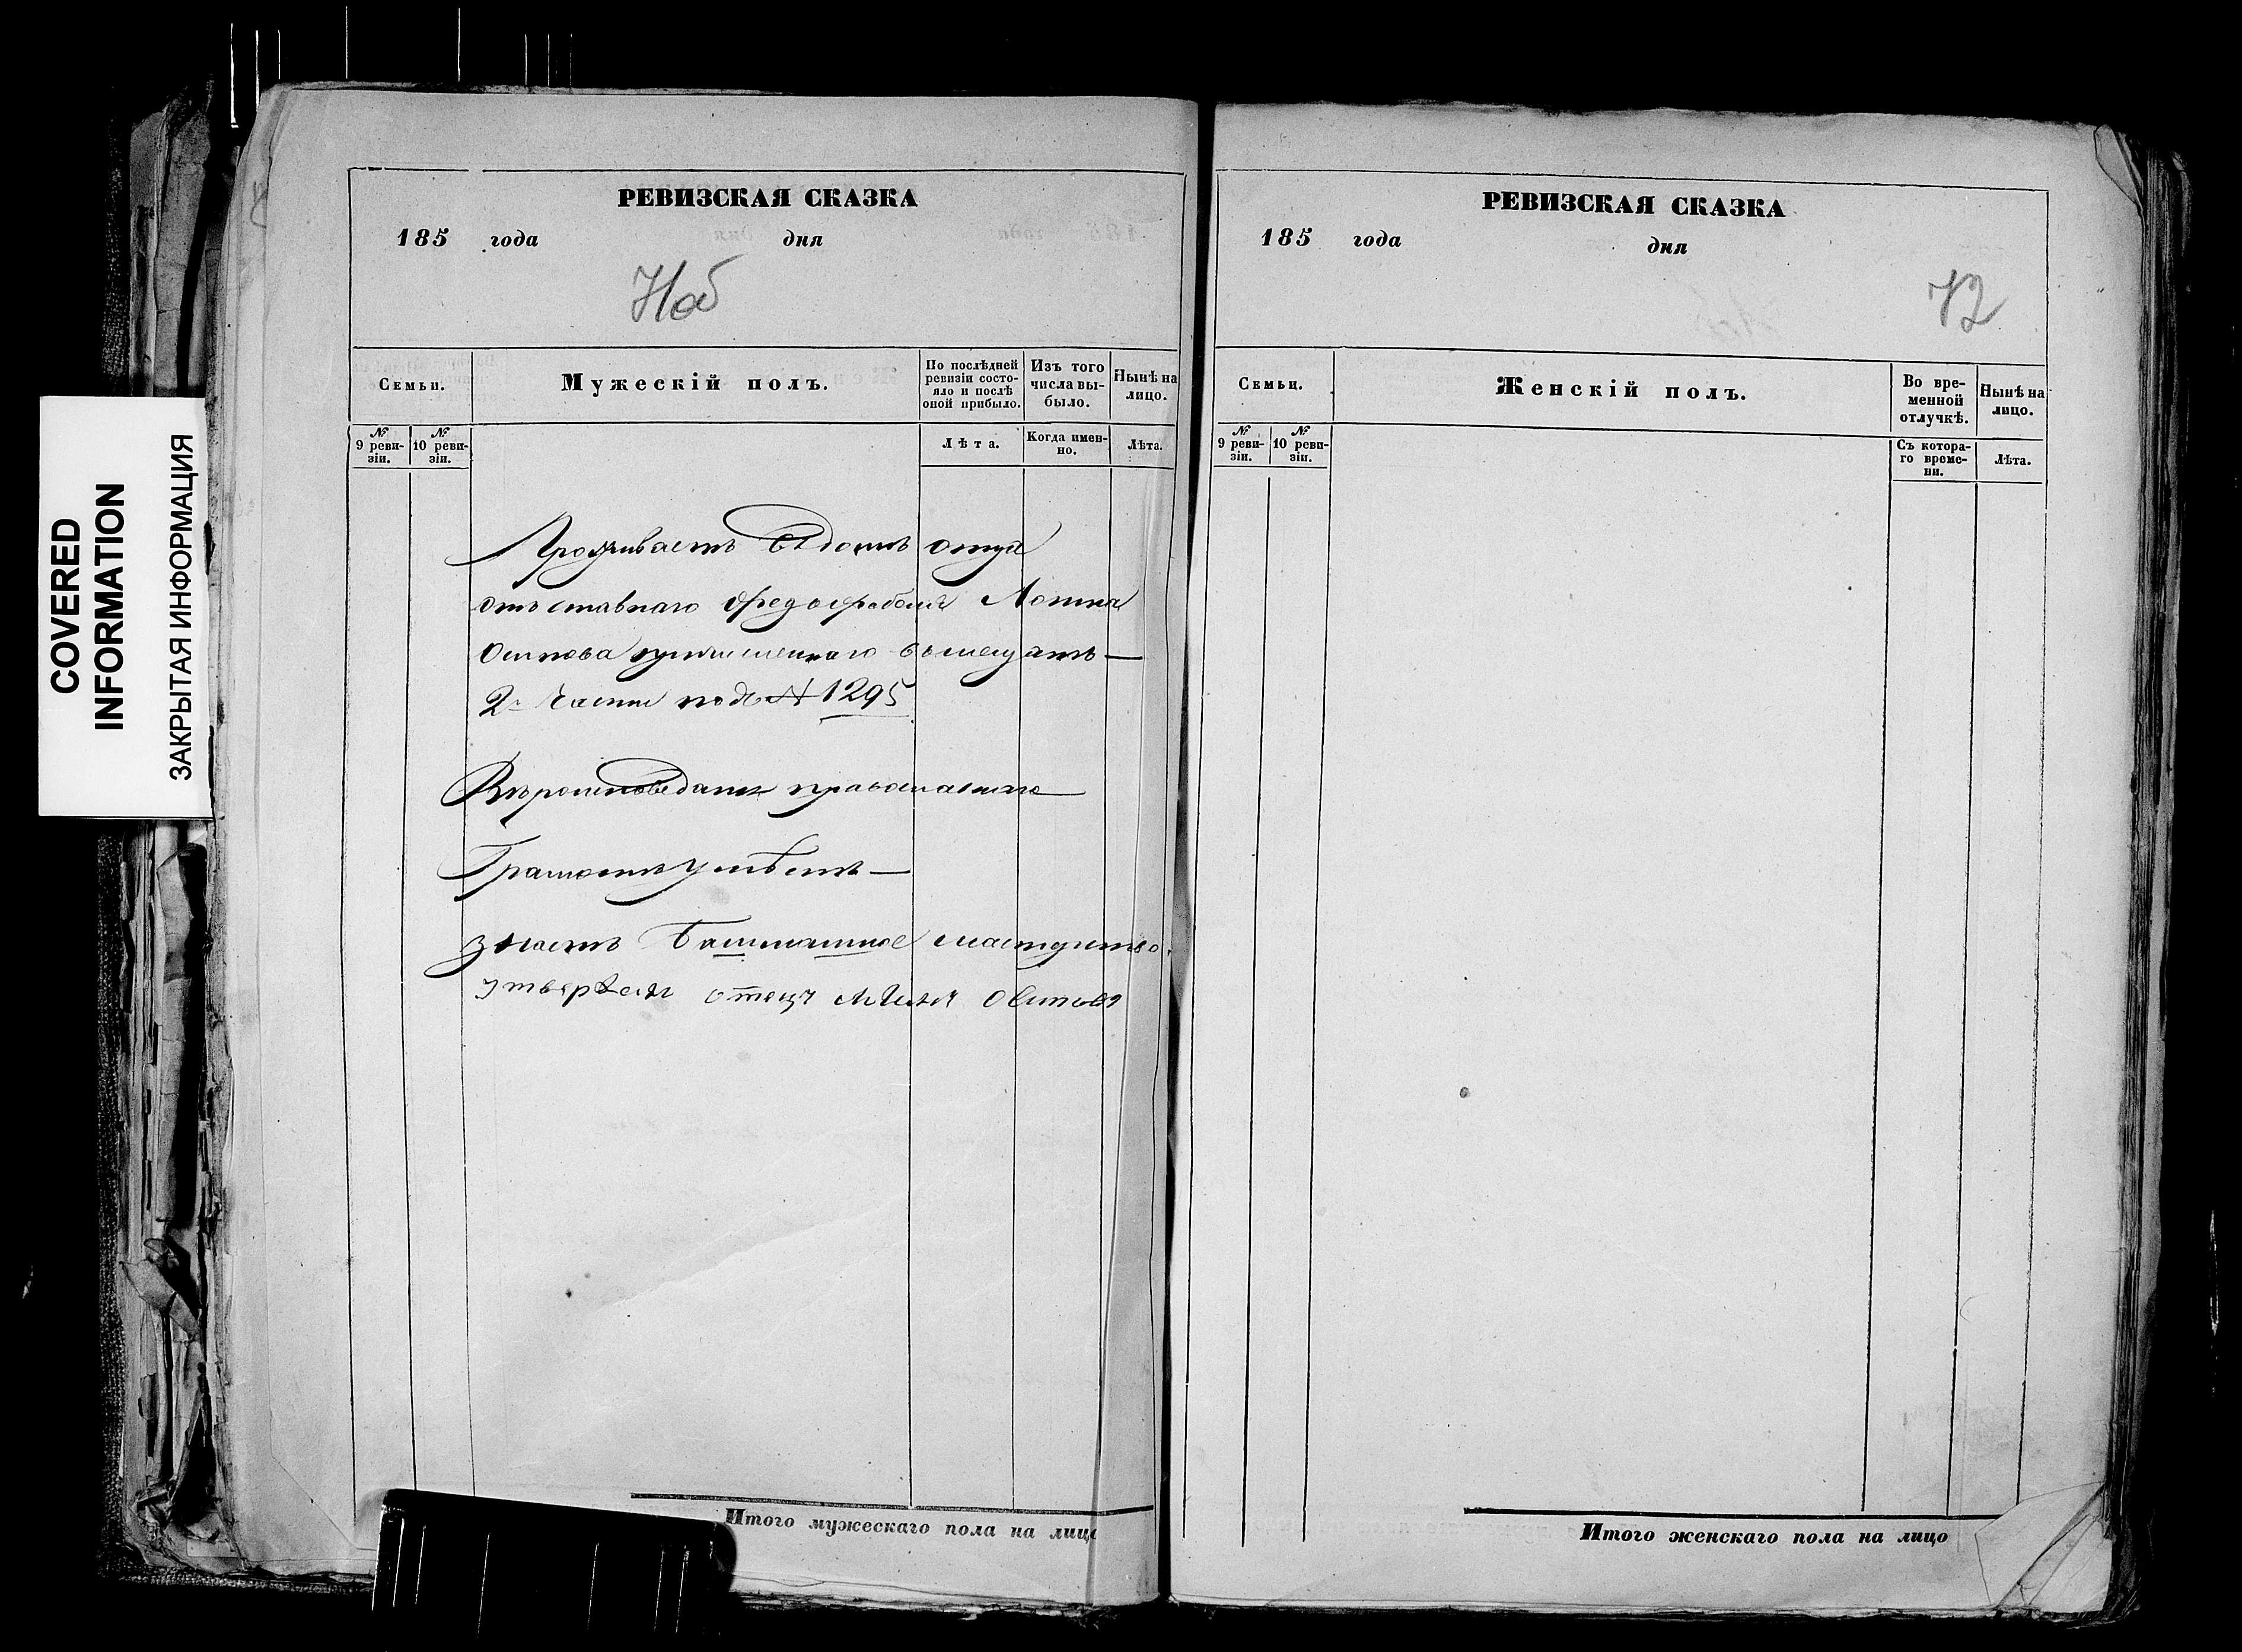 COVERED
INFORMATION
ЗАКРЫТАЯ ИНФОРМАЦИЯ
РЕВИЗСКАЯ СКАЗКА
185 года дня
Наб
Семьи.
Мужескій полъ.
По послѣдней ревизіи состояло и послѣ оной прибыло.
Изъ того числа выбыло.
Нынѣ на лицо.
№ 9 ревизіи.
№ 10 ревизіи.
Лѣта.
Когда именно.
Лѣта.
Проживаетъ въ домѣ отца
отъставнаго
Осипова
2й части подъ № 1295
Вѣроисповеданія православнаго
Грамотѣ умѣетъ
знаетъ башмашное мастерство.
отецъ Осиповъ
Итого мужескаго пола на лицо
РЕВИЗСКАЯ СКАЗКА
185 года дня
72
Семьи.
Женскій полъ.
Во временной отлучкѣ.
Нынѣ на лицо.
№ 9 ревизіи.
№ 10 ревизіи.
Съ котораго времени.
Лѣта.
Итого женскаго пола на лицо